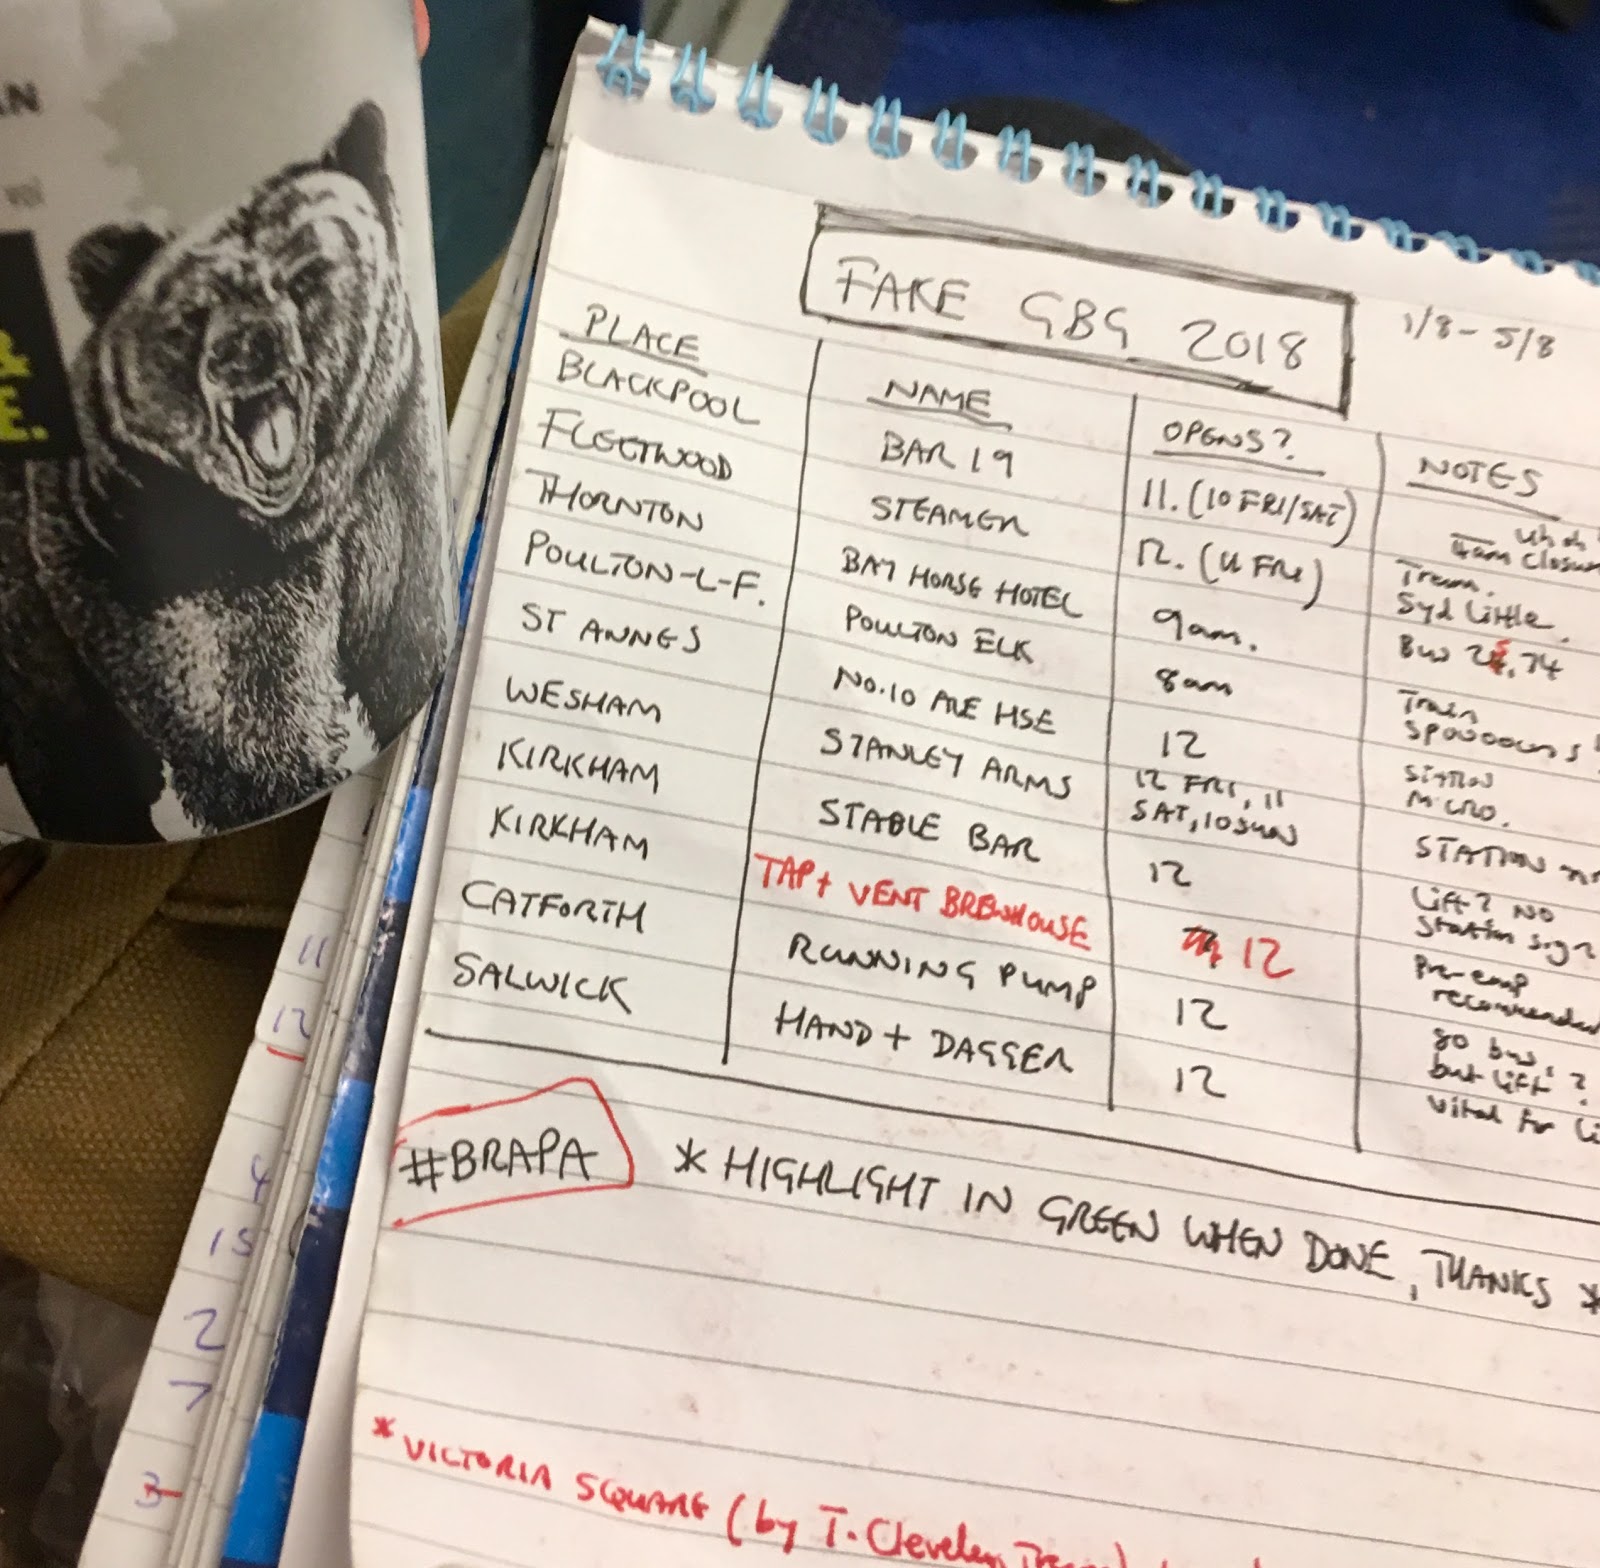 AN
&
E.
FAKE GBG 2018
1/8 - 5/8
PLACE NAME OPENS? NOTES
BLACKPOOL BAR 19 11. (10 FRI/SAT) which
Tram closure
FLEETWOOD STEAMER 12. (11 FRI) Tram.
Syd Little.
THORNTON BAY HORSE HOTEL 9am. Bus 74
POULTON-L-F. POULTON ELK 8am Train
Spooons
ST ANNES NO.10 ALE HSE 12 STATION
MICRO.
WESHAM STANLEY ARMS 12 FRI, 11
SAT, 10 SUN STATION
KIRKHAM STABLE BAR 12 Lift? NO
Station sign
KIRKHAM TAP + VENT BREWHOUSE 12 Pre-emp
recommended
CATFORTH RUNNING PUMP 12 80 bus,
but lift?
SALWICK HAND + DAGGER 12 Vital for
#BRAPA * HIGHLIGHT IN GREEN WHEN DONE, THANKS *
* VICTORIA SQUARE (by T. Cleveleys Tram)
11
12
4
15
2
7
3